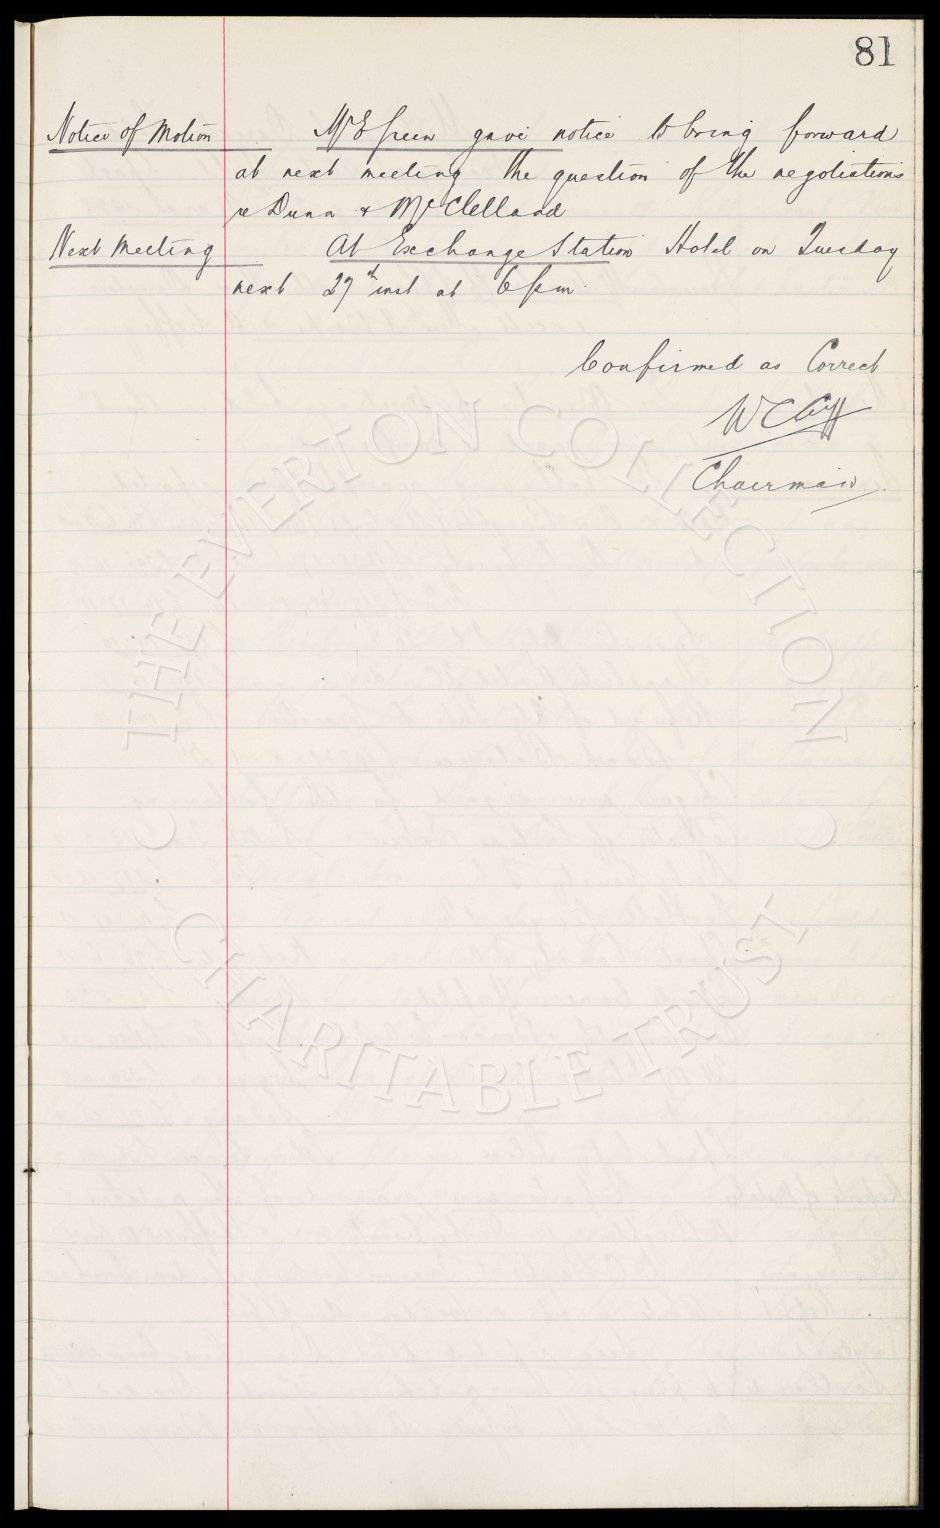 81
Notice of Motion Mr E Green gave notice to bring forward
at next meeting the question of the negotiations
re Dunn & McClelland
Next Meeting At Exchange Station Hotel on Tuesday
next 27th inst at 6 pm.
Confirmed as Correct
W C Cuff
Chairman
THE EVERTON COLLECTION
CHARITABLE TRUST